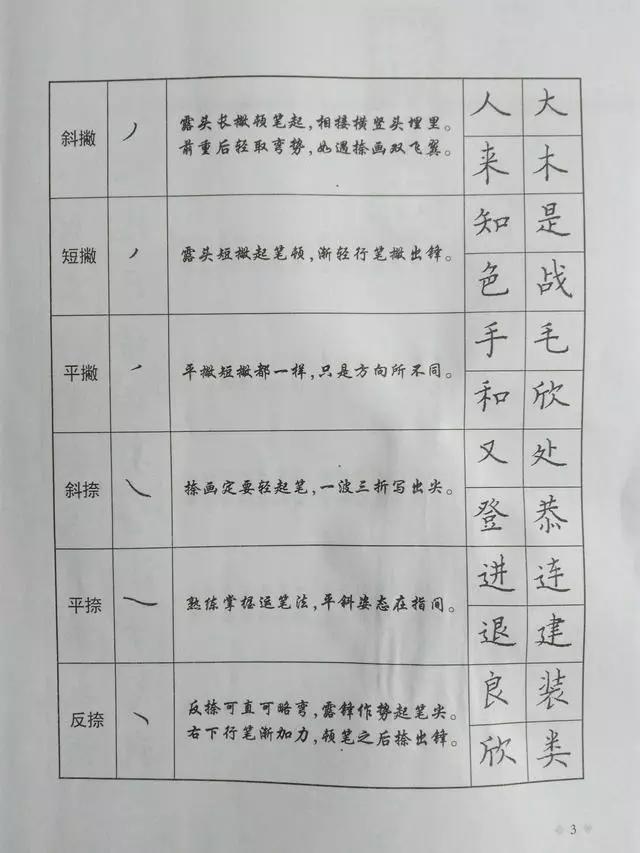 斜撇
丿
露头长撇顿笔起,相接横竖头埋里。
前重后轻取弯势,如遇捺画双飞翼。
人 大
来 木
短撇
丿
露头短撇起笔顿,渐轻行笔撇出锋。
知 是
色 战
平撇
平撇短撇都一样,只是方向所不同。
手 毛
和 欣
斜捺
捺画定要轻起笔,一波三折写出尖。
又 处
登 恭
平捺
熟练掌握运笔法,平斜姿态在指间。
进 连
退 建
反捺
反捺可直可略弯,露锋作势起笔尖。
右下行笔渐加力,顿笔之后捺出锋。
良 装
欣 类
3